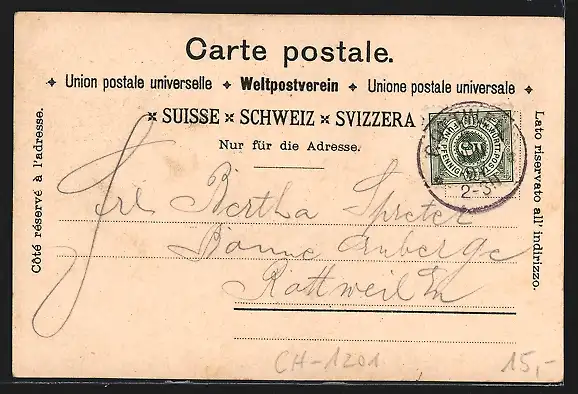 Carte postale.
✦ Union postale universelle ✦ Weltpostverein ✦ Unione postale universale ✦
⨯ SUISSE ⨯ SCHWEIZ ⨯ SVIZZERA ⨯
Nur für die Adresse.
Côté réservé à l'adresse.
Lato riservato all' indirizzo.
5
2-3
Frl Bertha Spreter
Bonne Auberge
Rottweil
CH-1201
15,-